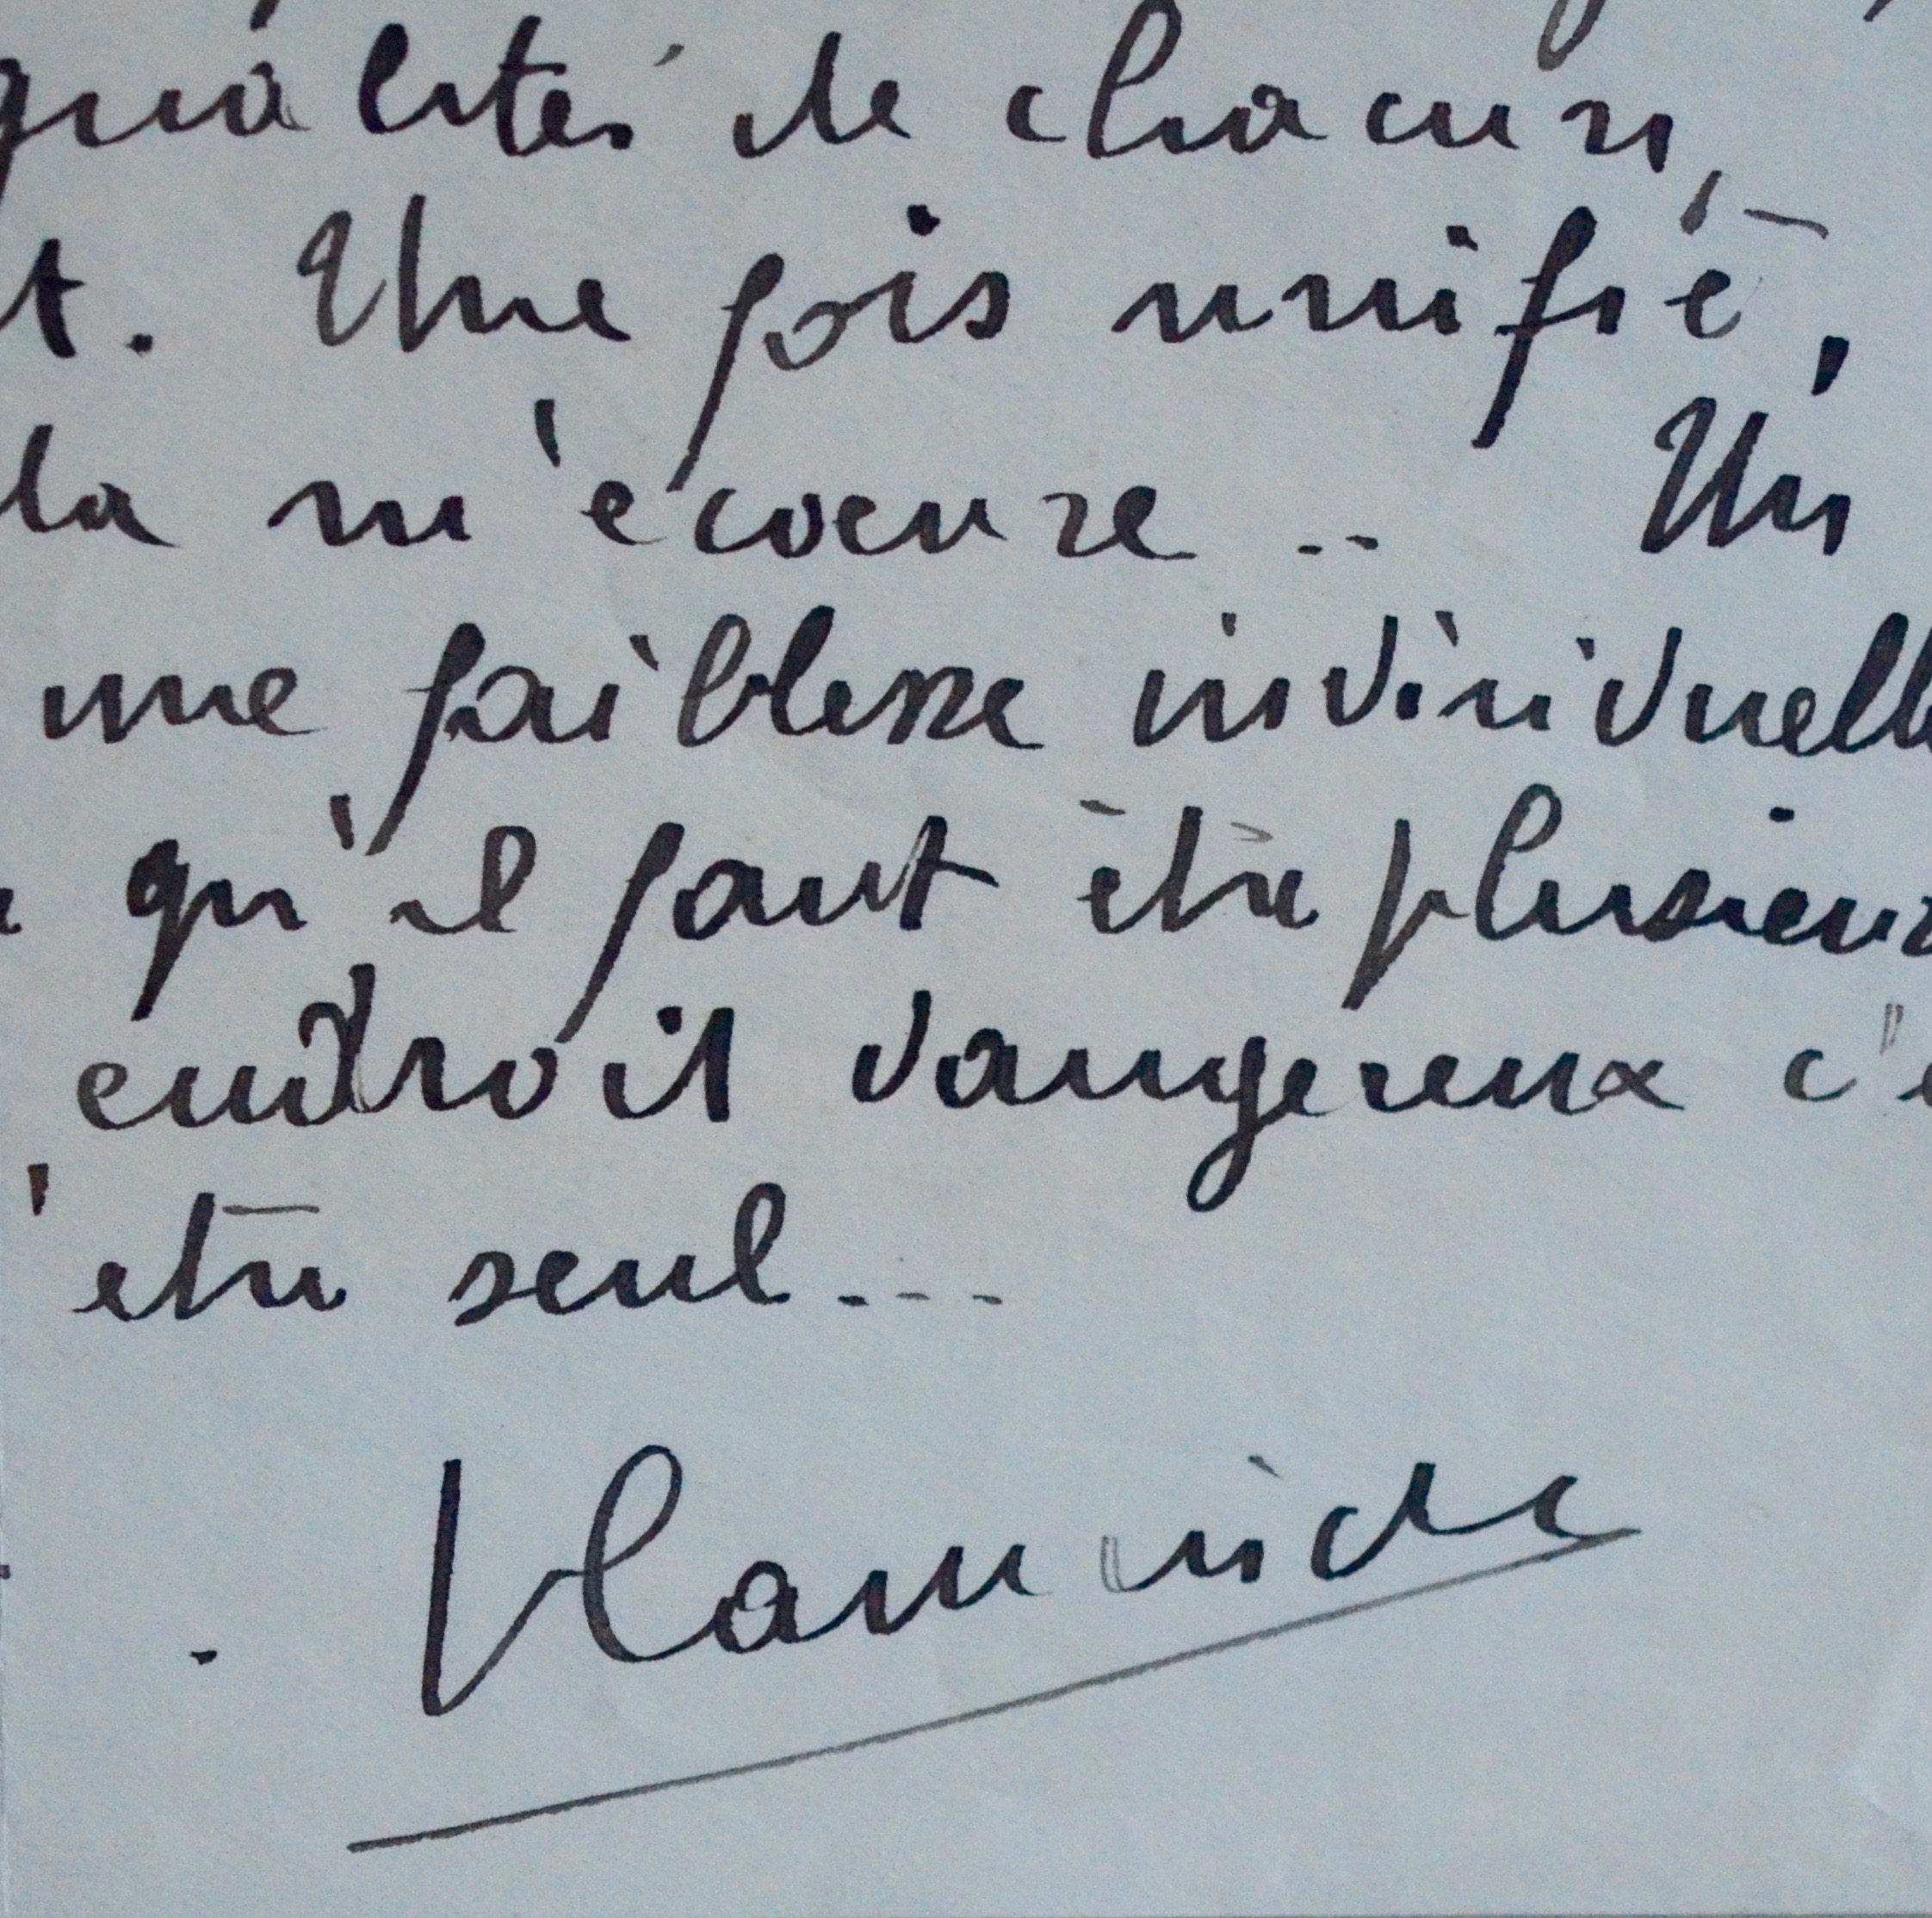 qualités de chacun,
t. Une fois unifié,
la m'écoeure .. Un
une faiblesse individuelle
qu'il faut être plusieur
endroit dangereux c'e
être seul...
Vlaminck